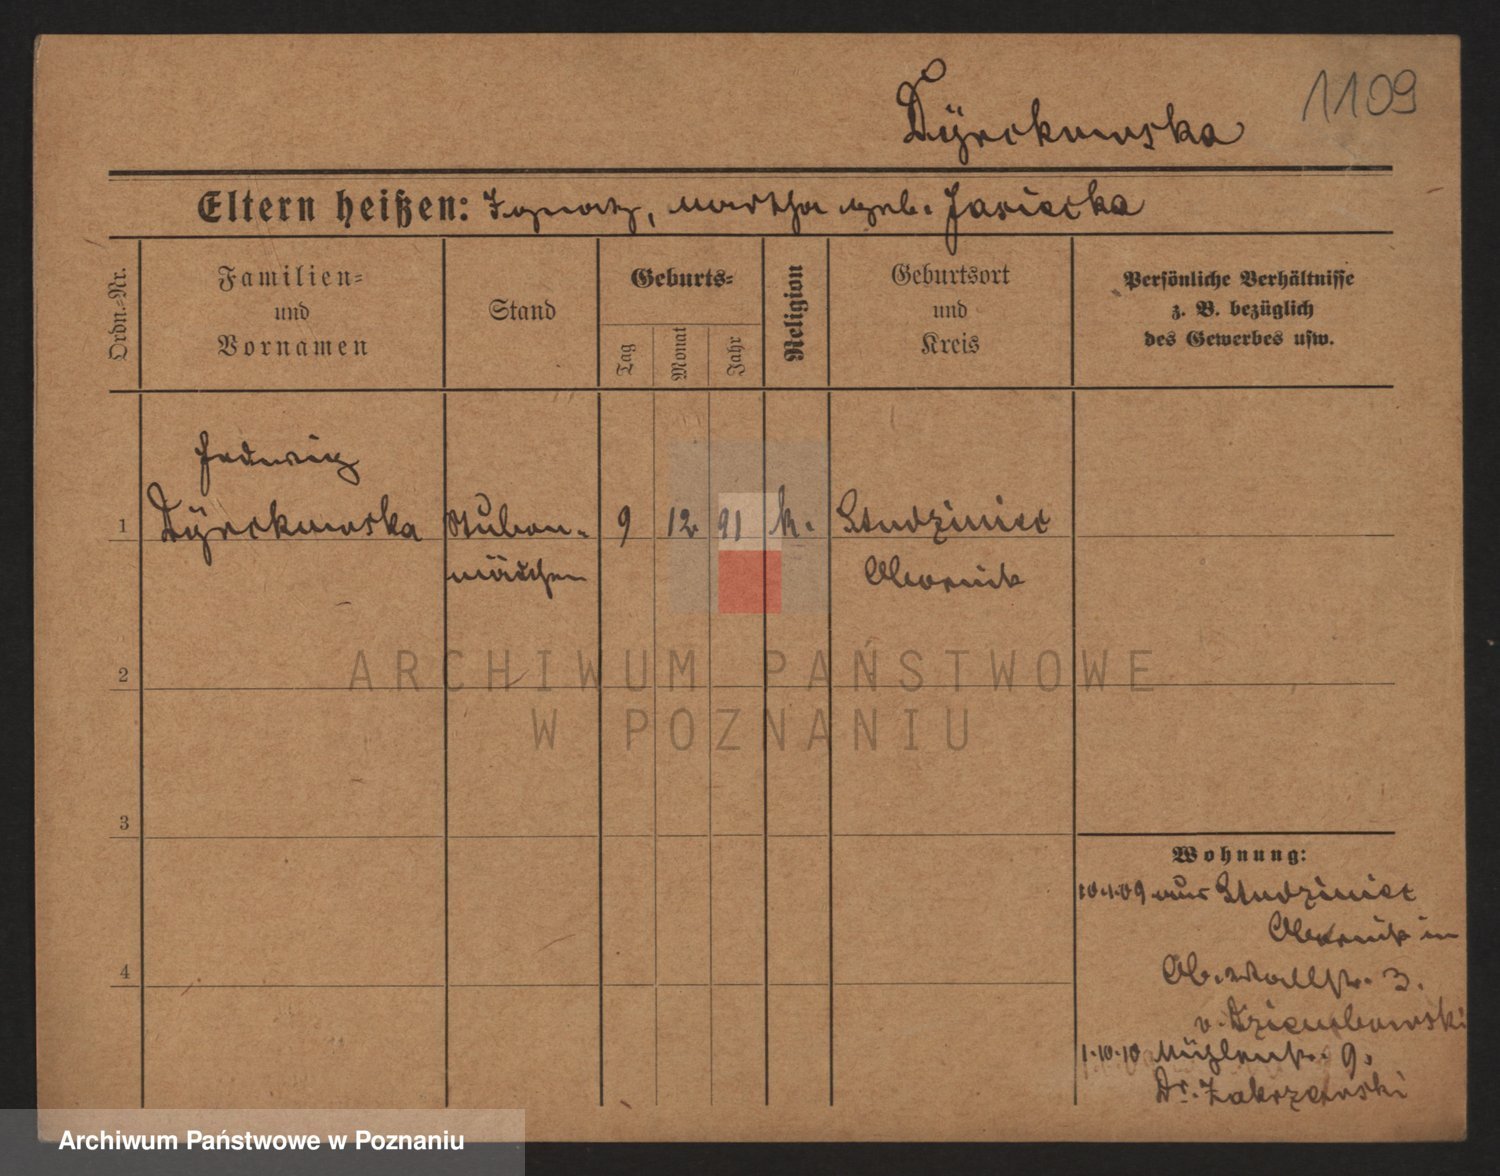 1109
Dÿrckowska
Eltern heißen: Ignatz, Martha geb. Jasiecka
Ordn.-Nr.
Familien-
und
Vornamen
Stand
Geburts-
Tag
Monat
Jahr
Religion
Geburtsort
und
Kreis
Persönliche Verhältnisse
z. B. bezüglich
des Gewerbes usw.
Hedwig
1 Dÿrckowska Stuben- 9 12. 91 k. Studziniec
mädchen Obornik
2
ARCHIWUM PAŃSTWOWE
W POZNANIU
3
Wohnung:
10.1.09 aus Studziniec
Obornik in
Ob. Wallstr. 3.
v. Dziembowski
4
1.10.10 Mühlenstr. 9.
Dr. Zakrzewski
Archiwum Państwowe w Poznaniu